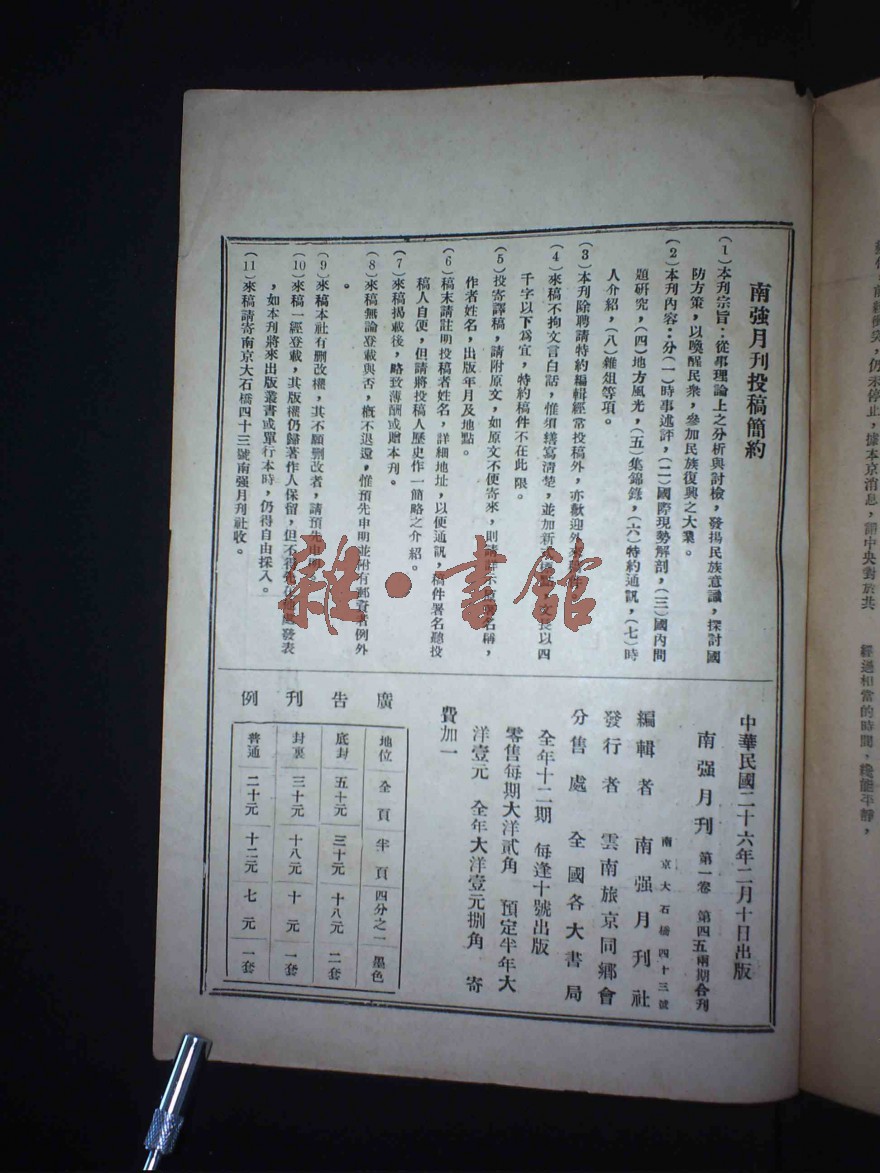 南强月刊投稿簡約
(1)本刊宗旨：從事理論上之分析與討檢，發揚民族意識，探討國
防方策，以喚醒民衆，參加民族復興之大業。
(2)本刊內容：分(一)時事述評，(二)國際現勢解剖，(三)國內問
題研究，(四)地方風光，(五)集錦錄，(六)特約通訊，(七)時
人介紹，(八)雜俎等項。
(3)本刊除聘請特約編輯經常投稿外，亦歡迎外來
(4)來稿不拘文言白話，惟須繕寫清楚，並加新式標點，文長以四
千字以下爲宜，特約稿件不在此限。
(5)投寄譯稿，請附原文，如原文不便寄來，則請詳示原著名稱，
作者姓名，出版年月及地點。
(6)稿末請註明投稿者姓名，詳細地址，以便通訊，稿件署名聽投
稿人自便，但請將投稿人歷史作一簡略之介紹。
(7)來稿揭載後，略致薄酬或贈本刊。
(8)來稿無論登載與否，概不退還，惟預先申明並附有郵資者例外
。
(9)來稿本社有刪改權，其不願刪改者，請預先申明。
(10)來稿一經登載，其版權仍歸著作人保留，但不得 發表
，如本刊將來出版叢書或單行本時，仍得自由採入。
(11)來稿請寄南京大石橋四十三號南强月刊社收。
中華民國二十六年二月十日出版
南强月刊 第一卷 第四五兩期合刊
南京大石橋四十三號
編輯者 南强月刊社
發行者 雲南旅京同鄉會
分售處 全國各大書局
全年十二期 每逢十號出版
零售每期大洋貳角 預定半年大
洋壹元 全年大洋壹元捌角 寄
費加一
廣告刊例
地位 全頁 半頁 四分之一 墨色
底封 五十元 三十元 十八元 二套
封裏 三十元 十八元 十元 一套
普通 二十元 十二元 七元 一套
雜·書館
仍未停止，據本京消息，謂中央對於共
經過相當的時間，纔能平靜，